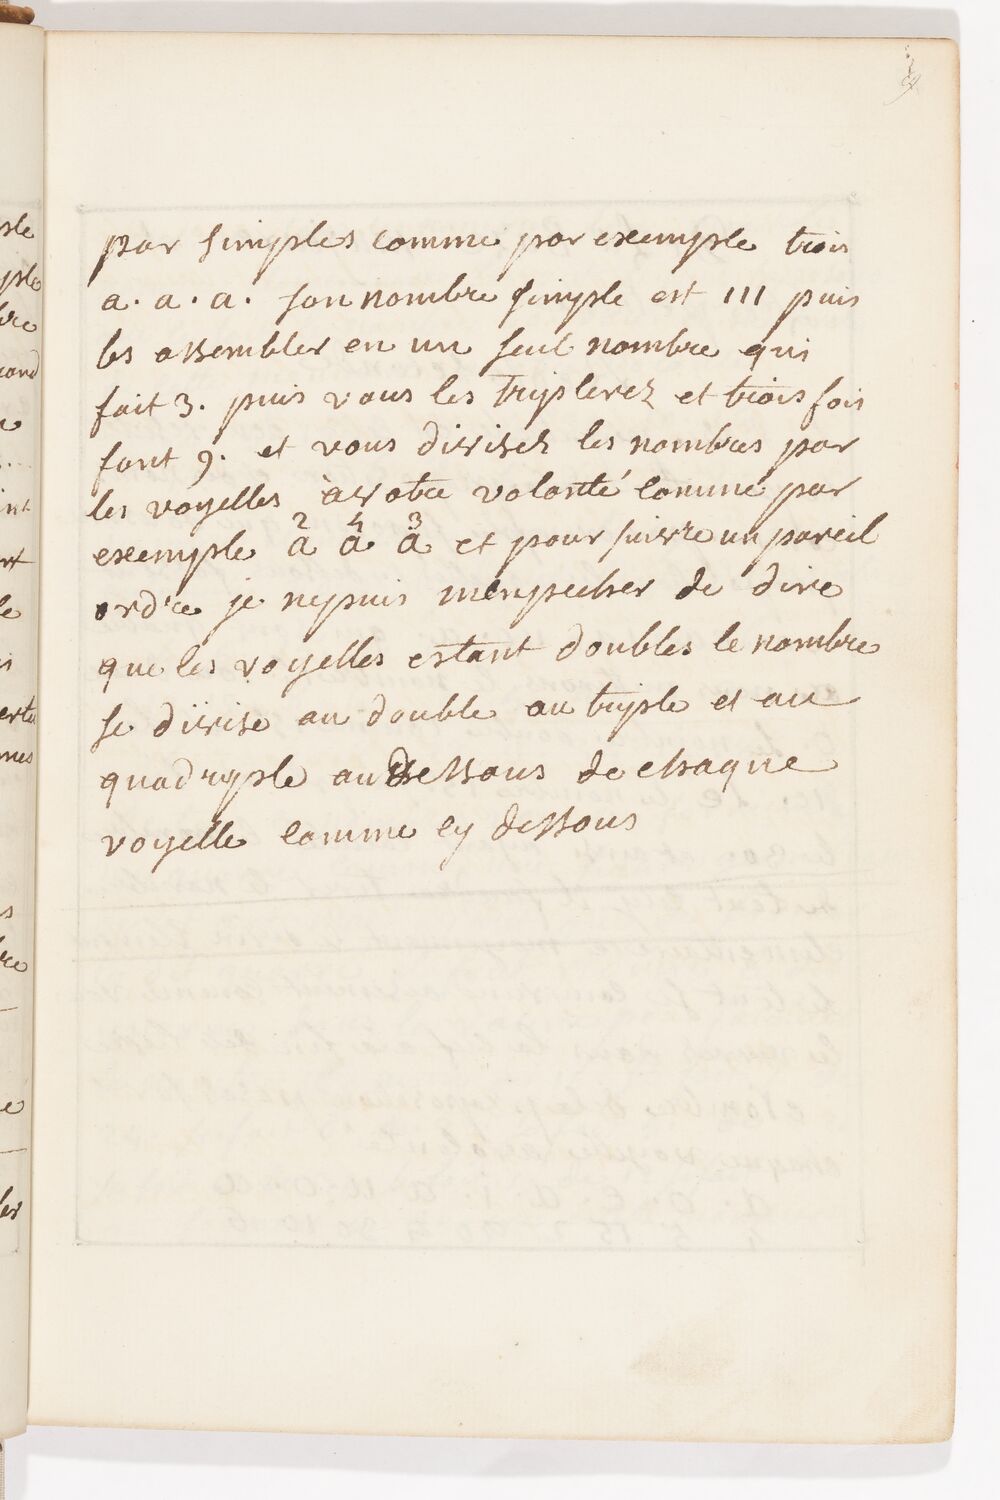 par simples comme par exemple trois
a. a. a. son nombre simple est 111 puis
les assembler en un seul nombre qui
fait 3. puis vous les triplerez et trois fois
font 9. et vous divisez les nombres par
les voyelles à votre volonté comme par
exemple a a a et pour suivre un pareil
2 4 3
ordre je ny puis m'enpecher de dire
que les voyelles estant doubles le nombre
se divise au double au triple et au
quadruple au dessous de chaque
voyelle comme cy dessous